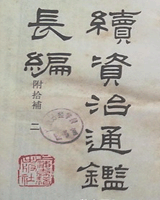 續資治通鑑
長編
附拾補 二